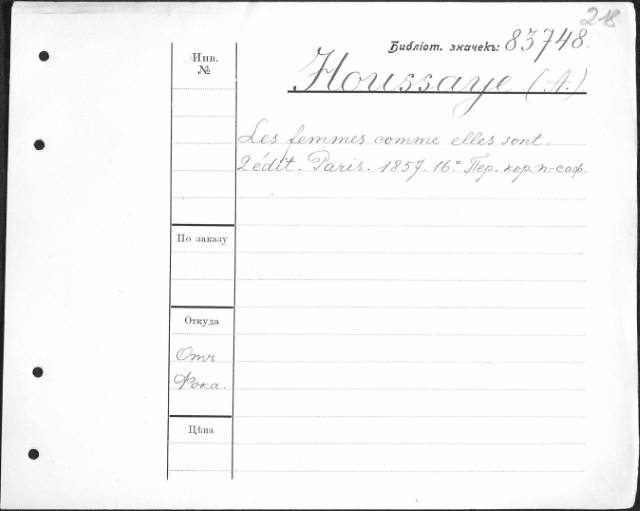 218
Библіот. значекъ: 83748.
Инв.
№
Houssaye (A.)
Les femmes comme elles sont.
2 édit. Paris. 1857. 16° Пер. кор. п-саф.
По заказу
Откуда
Отъ
Фока.
Цѣна